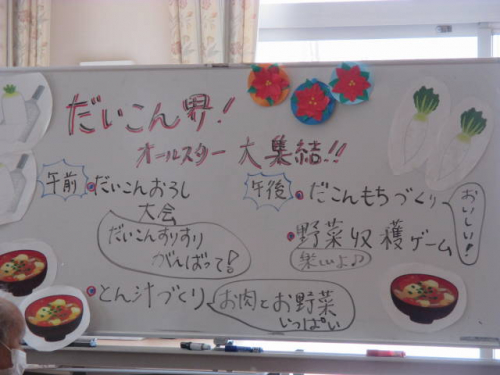 だいこん界!
オールスター 大集結!!
午前
だいこんおろし
大会
だいこんすりすり
がんばって!
とん汁づくり
お肉とお野菜
いっぱい
午後
だこんもちづくり
おいしい!
野菜収穫ゲーム
楽しいよ♪